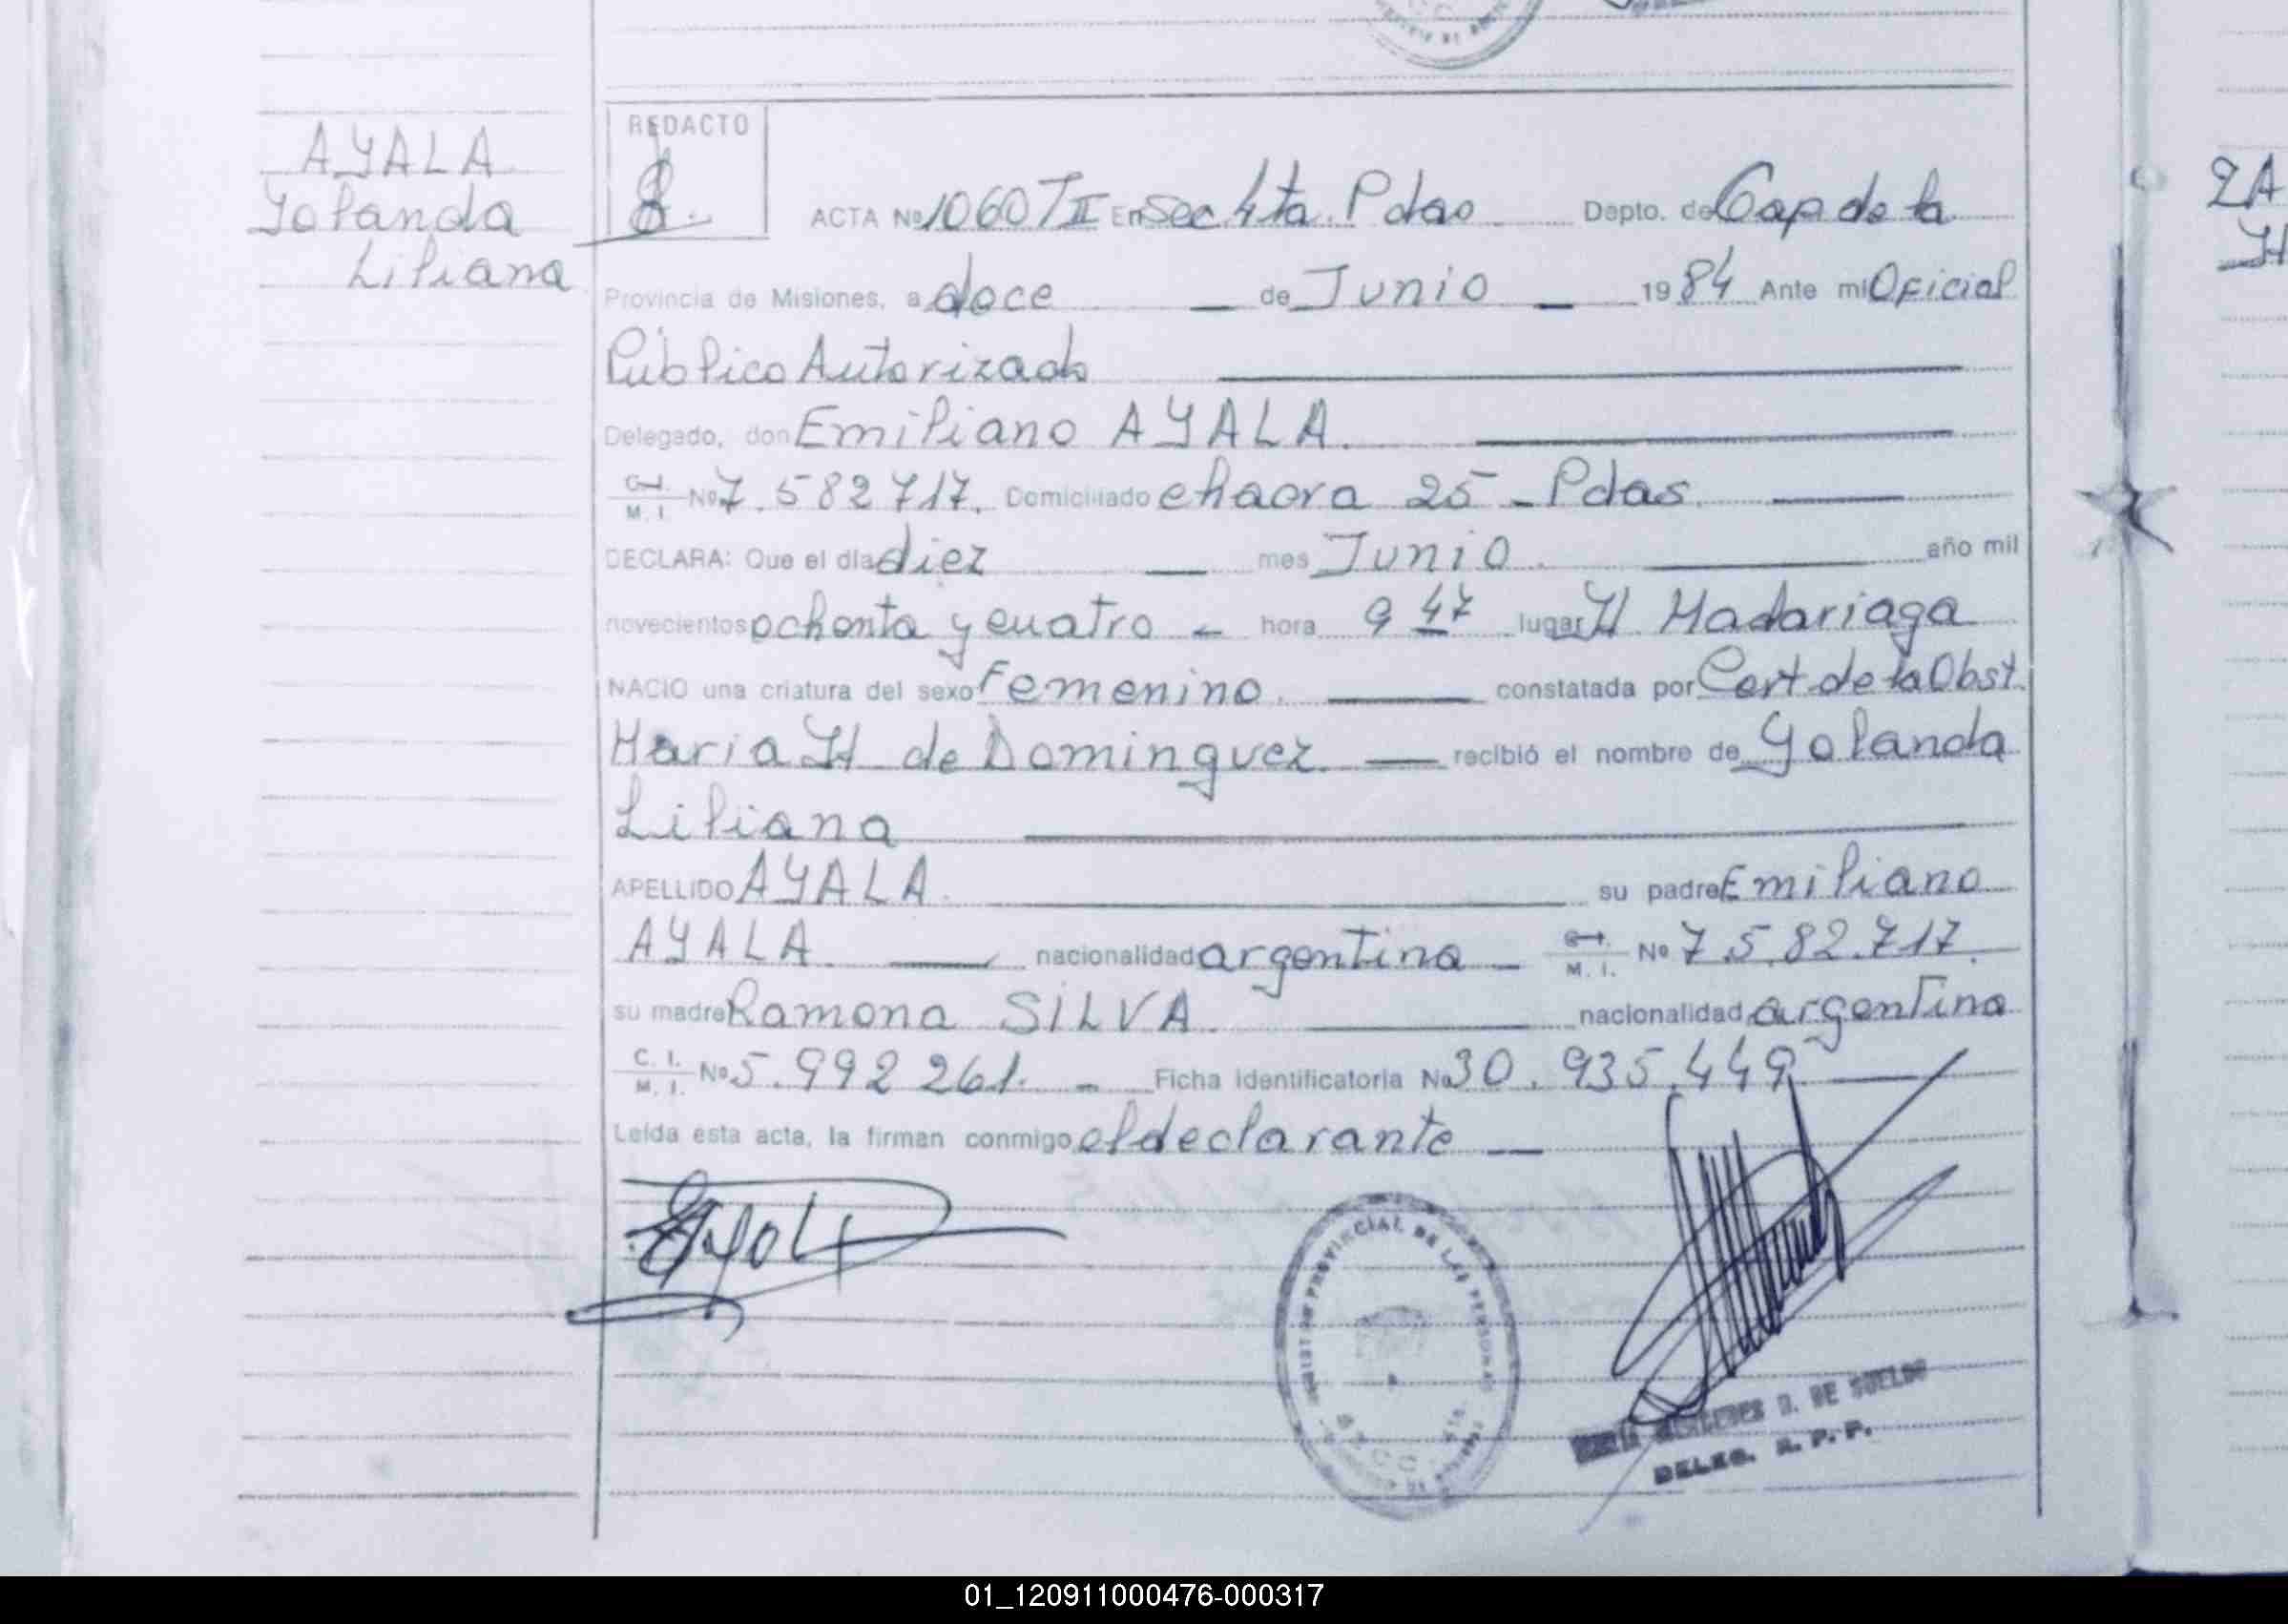 AYALA
Yolanda
Liliana
REDACTO
ACTA Nº 1060 T II En Sec 4ta. Pdas Dpto. de Cap de la
Provincia de Misiones, a doce de Junio 1984 Ante mi Oficial
Público Autorizado
Delegado, don Emiliano AYALA.
C.I. M. I. Nº 7.582717. Domiciliado chacra 25 - Pdas.
DECLARA: Que el día diez mes Junio. año mil
novecientos ochenta y cuatro - hora 9 47 lugar H. Madariaga
NACIO una criatura del sexo femenino. constatada por Cert. de la Obst.
Maria H de Dominguez. recibió el nombre de Yolanda
Liliana
APELLIDO AYALA. su padre Emiliano
AYALA. nacionalidad argentina - C.I. M. I. Nº 7.582.717.
su madre Ramona SILVA. nacionalidad argentina
C. I. M. I. Nº 5.992 261. - Ficha identificatoria Nº 30.935.449
Leída esta acta, la firman conmigo el declarante
PROVINCIAL DE LAS PERSONAS
D. DE SUELDO
DELEG. R. P. P.
2A
H
01_120911000476-000317